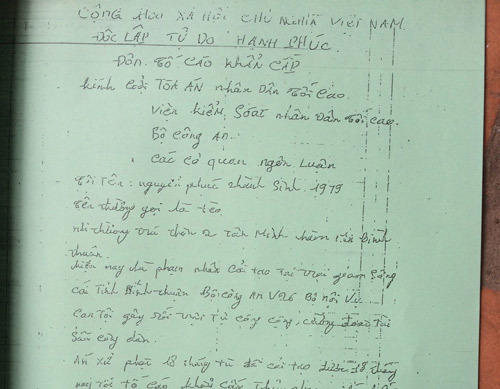 CỘNG HOÀ XÃ HỘI CHỦ NGHĨA VIỆT NAM
ĐỘC LẬP TỰ DO HẠNH PHÚC
ĐƠN TỐ CÁO KHẨN CẤP
kính gởi TOÀ ÁN nhân Dân Tối Cao
Viện kiểm soát nhân Dân Tối cao
Bộ Công An
các cơ quan ngôn Luận
Tôi Tên: nguyễn phúc thành Sinh 1979
Tên thường gọi là tèo
nơi thường trú thôn 2 tân Minh hàm Bình
thuận
hiện nay là phạm nhân cải tạo tại trại giam Sông
cái Tỉnh Bình thuận Bộ công An V26 Bộ nội Vụ
can Tội gây rối trật tự công cộng, cưỡng đoạt Tài
Sản công dân
Án xử phạt 18 tháng tù đã cải tạo được 18 tháng
nay Tôi tố cáo khẩn cấp